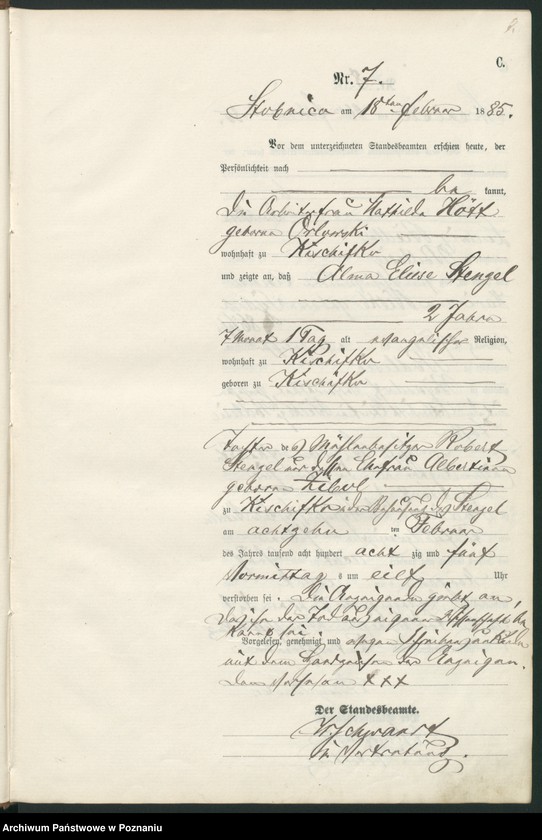 C.
Nr. 7.
Stobnica am 18ten Februar 1885.
Vor dem unterzeichneten Standesbeamten erschien heute, der
Persönlichkeit nach
be kannt,
die Arbeiterfrau Mathilde Höft
geborene
wohnhaft zu Kischifke
und zeigte an, daß Alma Eliese Stengel
2 Jahre
7 Monat 1 Tag alt evangelischer Religion,
wohnhaft zu Kischifke
geboren zu Kischifke
Tochter des Mühlenbesitzer Robert
Stengel und dessen Ehefrau Albertine
geborene
zu Kischifke in der Behausung des Stengel
am achtzehn ten Februar
des Jahres tausend acht hundert acht zig und fünf
Vormittag s um eilf Uhr
verstorben sei. Die Anzeigende giebt an,
daß ihr der Tod aus eigener Wissenschaft be
kannt sei.
Vorgelesen, genehmigt und wegen Schreibensunkunde
mit dem Handzeichen der Anzeigen
den versehen xxx
Der Standesbeamte.
W Schwandt
in Vertretung.
Archiwum Państwowe w Poznaniu